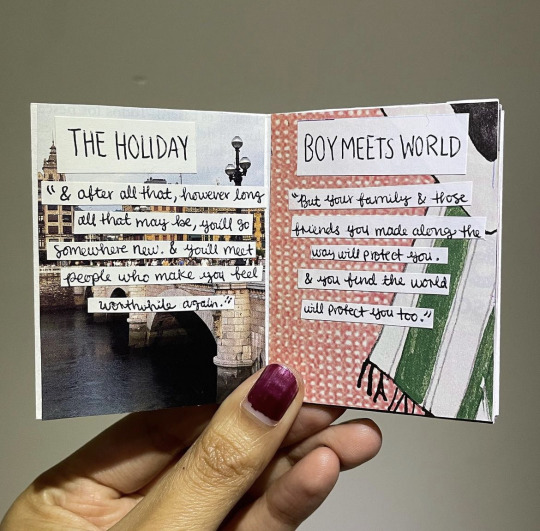 THE HOLIDAY
"& after all that, however long
all that may be, you'll go
somewhere new. & you'll meet
people who make you feel
worthwhile again."
BOY MEETS WORLD
"But your family & those
friends you made along the
way will protect you.
& you find the world
will protect you too."